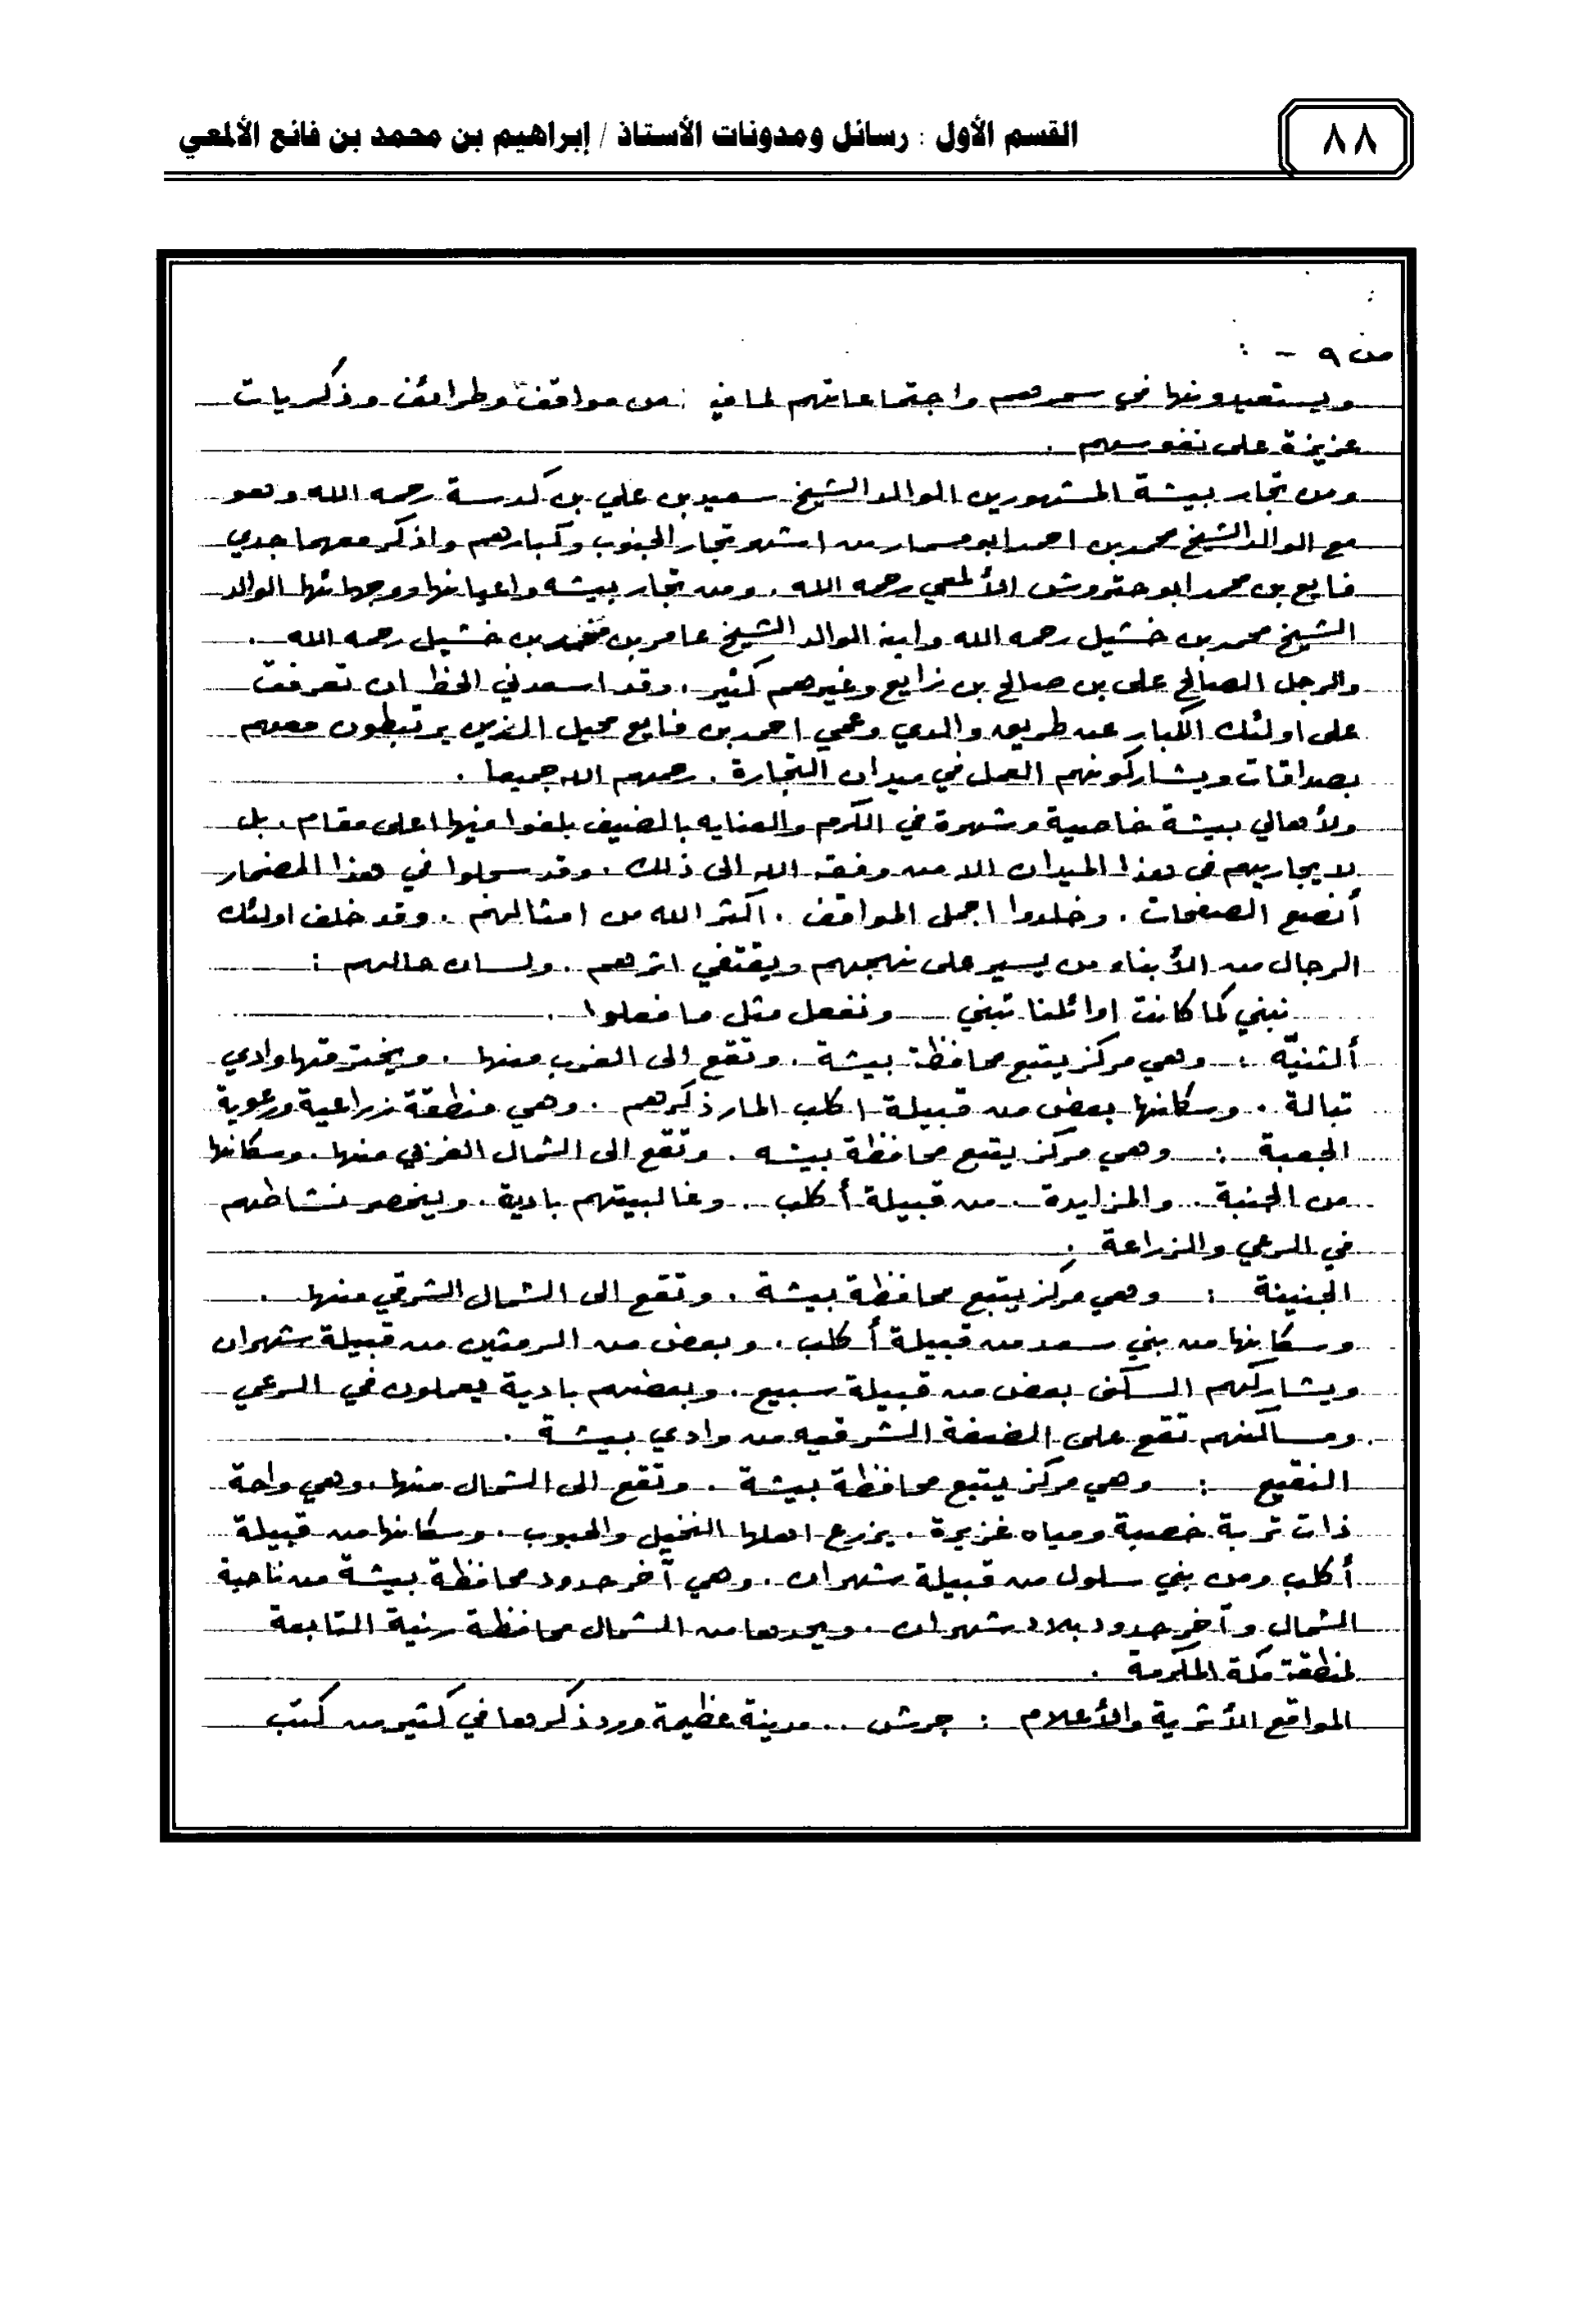 ٨٨
القسم الأول : رسائل ومدونات الأستاذ / إبراهيم بن محمد بن فائع الألمعي
ص ٩ - :
ويستعيدونها في سمرهم واجتماعاتهم لما فيه من مواقف وطرائف وذكريات
عزيزة على نفوسهم .
ومن تجار بيشة المشهورين الوالد الشيخ سعيد بن علي بن كدسة رحمه الله وهو
مع الوالد الشيخ محمد بن احمد ابو مسمار من اشهر تجار الجنوب وكبارهم واذكر معهما جدي
فايع بن محمد ابو حتروش الألمعي رحمه الله . ومن تجار بيشه واعيانها ووجهائها الوالد
الشيخ محمد بن خشيل رحمه الله وابنه الوالد الشيخ عامر بن محمد بن خشيل رحمه الله .
والرجل الصالح على بن صالح بن زايع وغيرهم كثير . وقد اسعدني الحظ ان تعرفت
على اولئك الكبار عن طريق والدي وعمي احمد بن فايع محيل الذين يرتبطون معهم
بصداقات ويشاركونهم العمل في ميدان التجارة . رحمهم الله جميعا .
ولأهالي بيشة خاصية وشهرة في الكرم والعنايه بالضيف بلغوا فيها اعلى مقام . بل
لا يجاريهم في هذا الميدان الا من وفقه الله الى ذلك . وقد سجلوا في هذا المضمار
أنصع الصفحات . وخلدوا اجمل المواقف . اكثر الله من امثالهم . وقد خلف اولئك
الرجال من الأبناء من يسير على نهجهم ويقتفي اثرهم . ولسان حالهم :
نبني كما كانت اوائلنا تبني ونفعل مثل ما فعلوا .
ألثنيّه : وهي مركز يتبع محافظة بيشة . وتقع الى الغرب منها . ويخترقها وادي
تبالة . وسكانها بعض من قبيلة اكلب المار ذكرهم . وهي منطقة زراعية ورعوية
الجعبة : وهي مركز يتبع محافظة بيشه . وتقع الى الشمال الغربي منها . وسكانها
من الجنبة . والمزايدة . من قبيلة أكلب . وغالبيتهم بادية . وينحصر نشاطهم
في الرعي والزراعة .
الجنينة : وهي مركز يتبع محافظة بيشة . وتقع الى الشمال الشرقي منها .
وسكانها من بني سعد من قبيلة أكلب . وبعض من الرمثين من قبيلة شهران
ويشاركهم السكن بعض من قبيلة سبيع . وبعضهم بادية يعملون في الرعي
ومساكنهم تقع على الضفة الشرقيه من وادي بيشة .
النقيع : وهي مركز يتبع محافظة بيشة . وتقع الى الشمال منها . وهي واحة
ذات تربة خصبة ومياه غزيرة . يزرع اهلها النخيل والحبوب . وسكانها من قبيلة
أكلب ومن بني سلول من قبيلة شهران . وهي آخر حدود محافظة بيشة من ناحية
الشمال وآخر حدود بلاد شهران . ويحدها من الشمال محافظة رنية التابعة
لمنطقة مكة المكرمة .
المواقع الأثرية والأعلام : جرش .. مدينة عظيمة ورد ذكرها في كثير من كتب